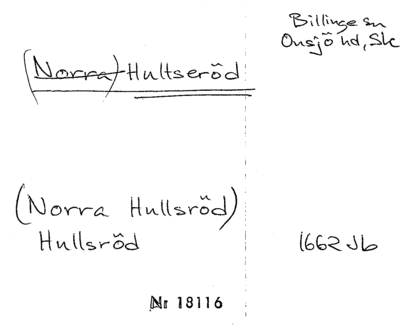 Billinge sn
Onsjö hd, Sk
(Norra) Hultseröd
(Norra Hullsröd)
Hullsröd
1662 Jb
Nr 18116